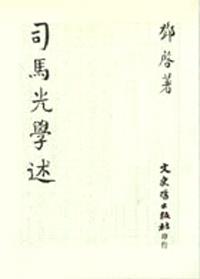 鄧啓著
司馬光學述
文史哲出版社印行